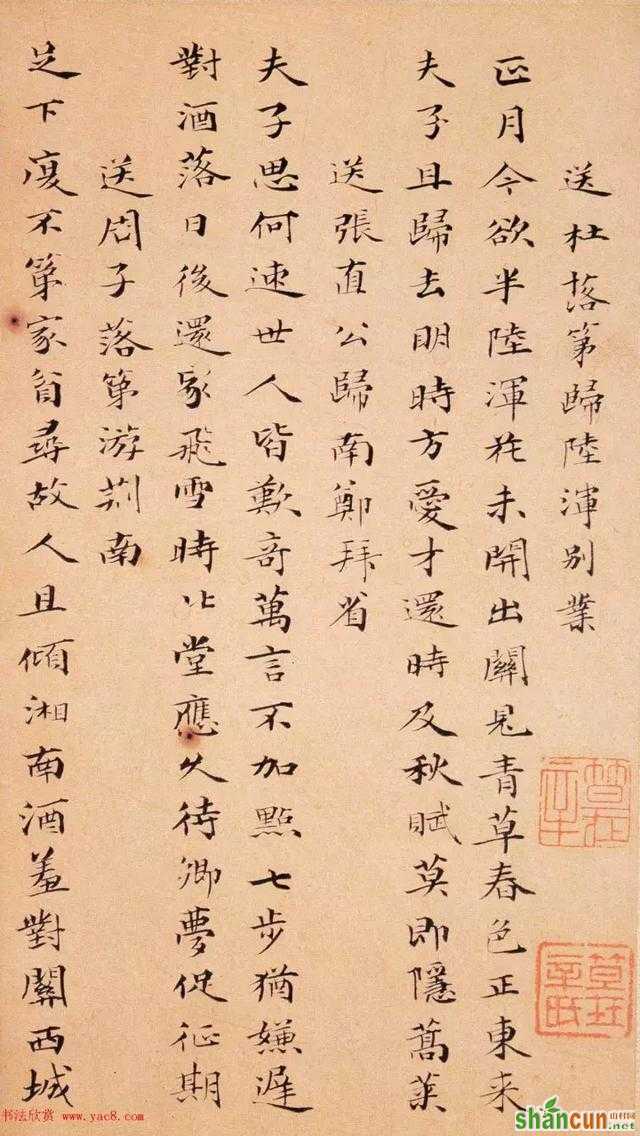 送杜落第歸陸渾別業
正月今欲半陸渾花未開出關見青草春色正東來
夫子且歸去明時方愛才還時及秋賦莫即隱蒿萊
送張直公歸南鄭拜省
夫子思何速世人皆歎奇萬言不加點七步猶嫌遲
對酒落日後還家飛雪時北堂應久待鄉夢促征期
送周子落第游荊南
足下復不第家貧尋故人且傾湘南酒羞對關西塵
书法欣赏 www.yac8.com
shancun
山村网
.net